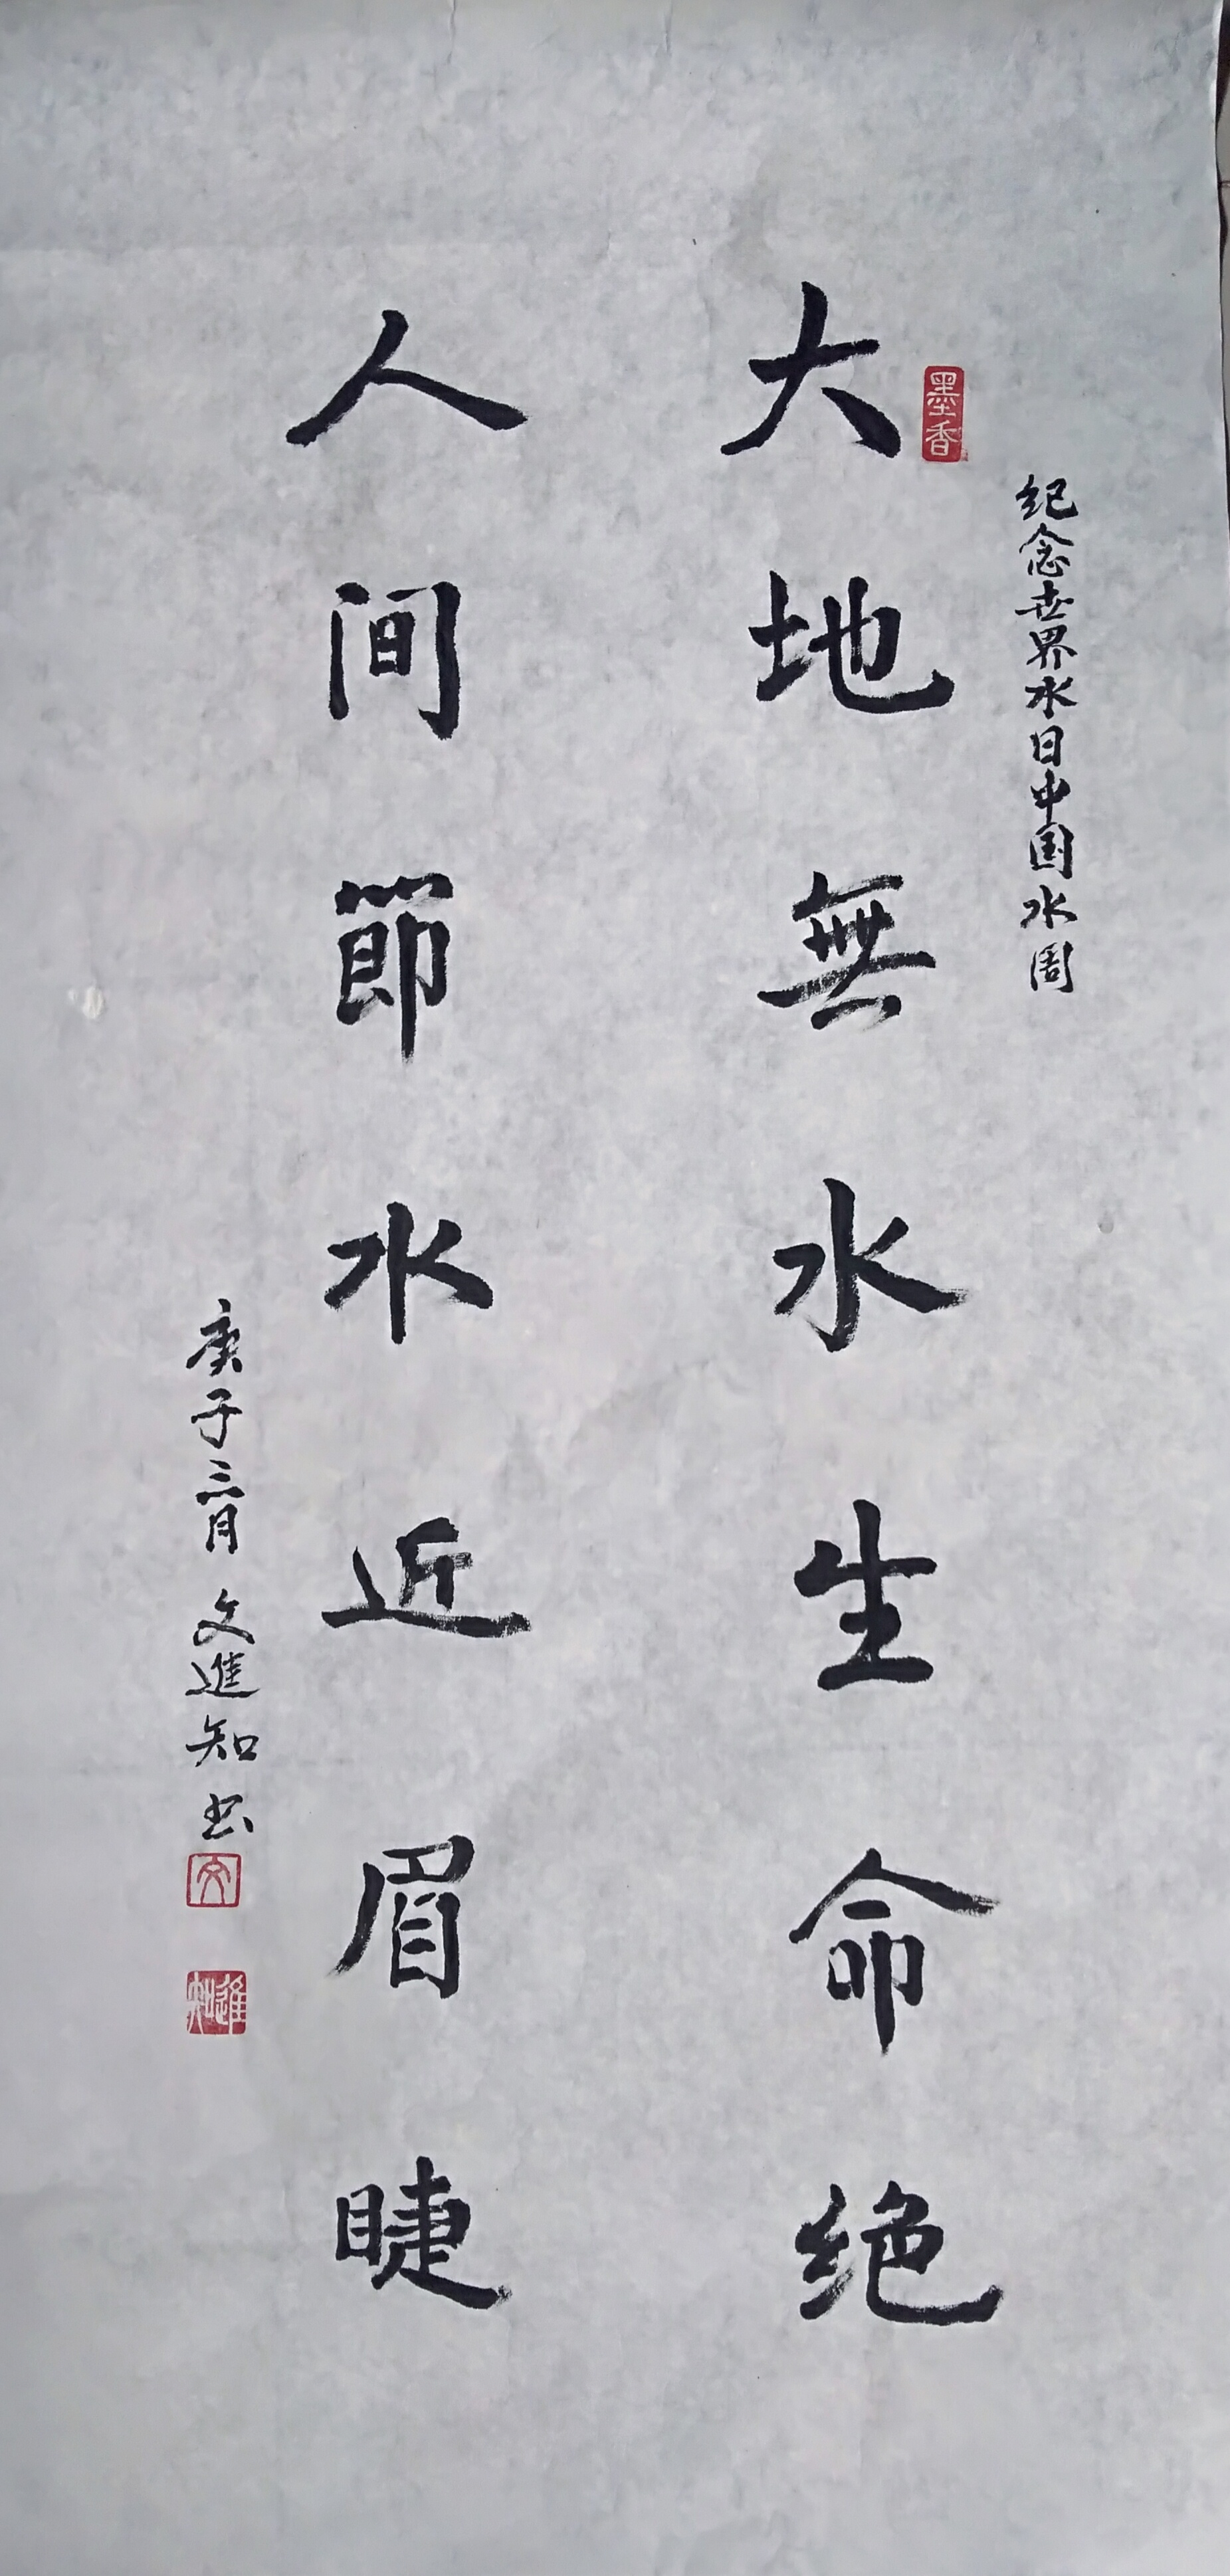 纪念世界水日中国水周
墨香
大地無水生命绝
人间節水近眉睫
庚子三月 文進知书
文
進知